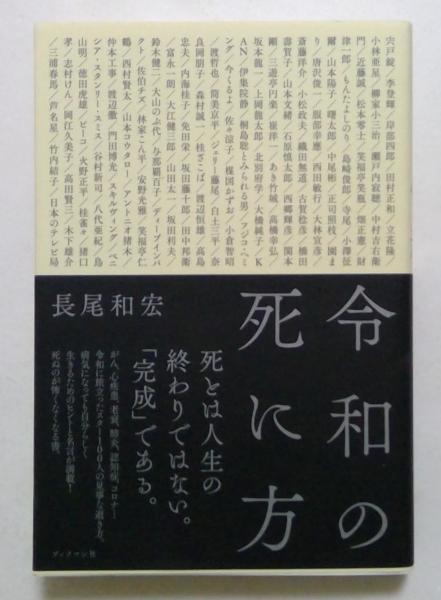 宍戸錠／李登輝／岸部四郎／田村正和／立花隆／
小林亜星／柳家小三治／瀬戸内寂聴／中村吉右衛
門／近藤誠／松本零士／笑福亭笑瓶／畑正憲／財
津一郎／もんたよしのり／島崎俊郎／寺尾／小澤征
爾／山本陽子／曙太郎／中尾彬／正司照枝／園ま
り／唐沢俊一／服部幸應／西田敏行／大林宣彦／
斎藤洋介／小松政夫／織田無道／古賀稔彦／橋田
壽賀子／山本文緒／石原慎太郎／西郷輝彦／関本
剛／三遊亭円楽／崔洋一／あき竹城／高橋幸弘／
坂本龍一／上岡龍太郎／北別府学／大橋純子／K
AN／伊集院静／桐島聡とみられる男／フジコ・ヘミ
ング／今くるよ／佐々涼子／楳図かずお／小倉智昭
／渡哲也／筒美京平／ジェリー藤尾／白土三平／奈
良岡朋子／森村誠一／桂ざこば／渡辺恒雄／高島
忠夫／内海桂子／免田栄／坂田藤十郎／田中邦衛
／富永一朗／大江健三郎／山田太一／坂田利夫／
鈴木健二／大山のぶ代／与那覇百子／ディープインパ
クト／佐伯チズ／林家こん平／安野光雅／笑福亭仁
鶴／西村賢太／山本コウタロー／アントニオ猪木／
仲本工事／渡辺徹／門田博光／スキルヴィング／ベニ
シア・スタンリー・スミス／谷村新司／八代亜紀／鳥
山明／徳田虎雄／ピーコ／火野正平／桂雀々／猪口
孝／志村けん／岡江久美子／高田賢三／木下雄介
／三浦春馬／芦名星／竹内結子／日本のテレビ局
令和の
死に方
長尾和宏
死とは人生の
終わりではない。
「完成」である。
がん、心疾患、老衰、肺炎、認知症、コロナ…
令和に旅立ったスター100人の見事な逝き方。
病気になっても自分らしく
生きるためのヒントと名言が満載！
死ぬのが怖くなくなる書。
ブックマン社